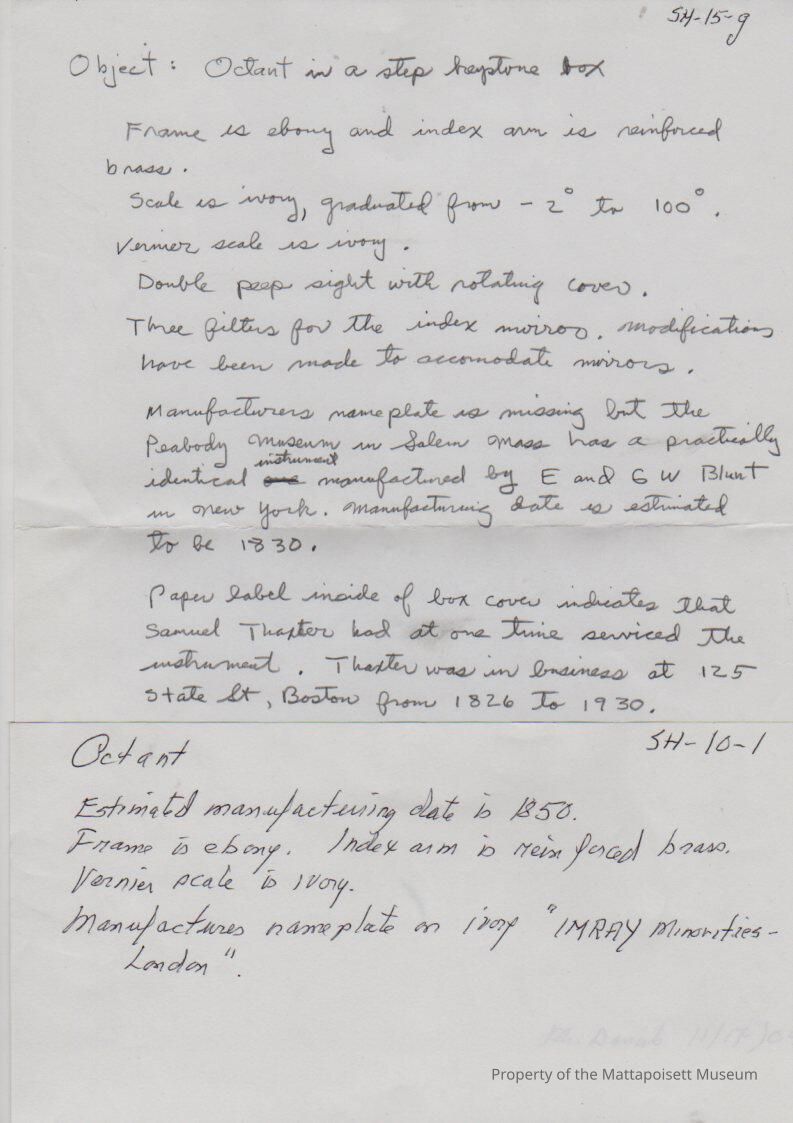 SH-15-g
Object: Octant in a step keystone box
Frame is ebony and index arm is reinforced
brass.
Scale is ivory, graduated from - 2° to 100°.
Vernier scale is ivory.
Double peep sight with rotating cover.
Three filters for the index mirror. Modifications
have been made to accomodate mirrors.
Manufacturers nameplate is missing but the
Peabody Museum in Salem Mass has a practically
identical instrument manufactured by E and G W Blunt
in New York. Manufacturing date is estimated
to be 1830.
Paper label inside of box cover indicates that
Samuel Thaxter had at one time serviced the
instrument. Thaxter was in business at 125
State St, Boston from 1826 to 1930.
SH-10-1
Octant
Estimated manufacturing date is 1850.
Frame is ebony. Index arm is reinforced brass.
Vernier scale is ivory.
Manufactures nameplate on ivory "IMRAY Minorities-
London".
Property of the Mattapoisett Museum